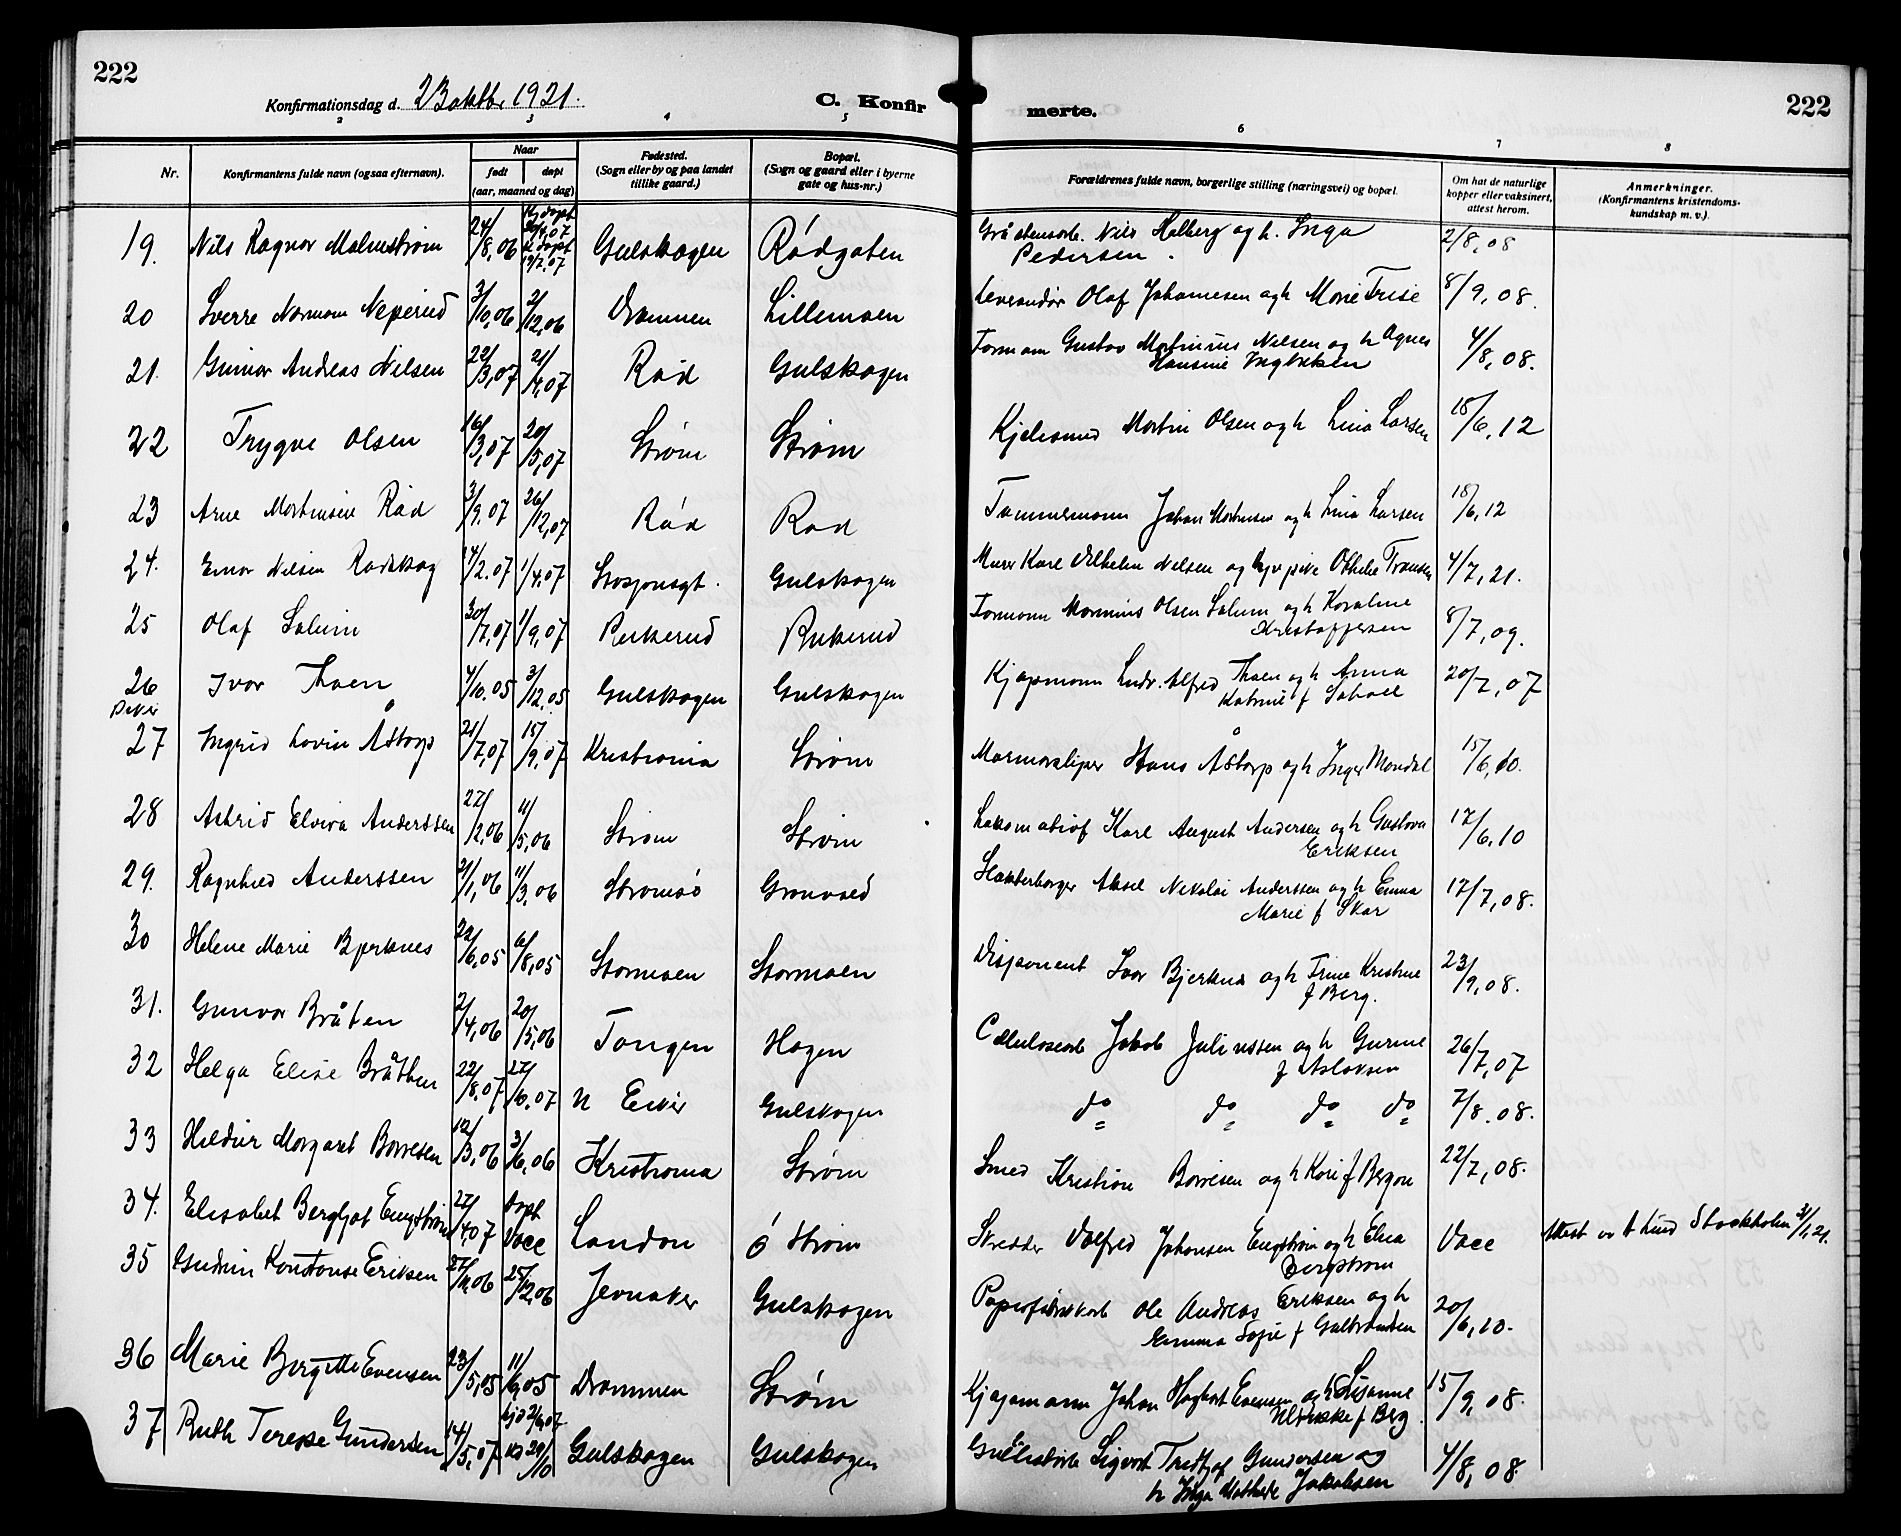 222
222
Konfirmationsdag d. 23 oktbr 1921.
C. Konfir
merte.
2 3 4 5
6 7 8
Nr.
Konfirmantens fulde navn (ogsaa efternavn).
Naar
født
døpt
(aar, maaned og dag)
Fødested.
(Sogn eller by og paa landet
tillike gaard.)
Bopæl.
(Sogn og gaard eller i byerne
gate og hus-nr.)
Forældrenes fulde navn, borgerlige stilling (næringsvei) og bopæl.
Om hat de naturlige
kopper eller vaksinert,
attest herom.
Anmerkninger.
(Konfirmantens kristendoms-
kundskap m. v.).
19. Nils Ragnar Malmstrøm 24/8,06 Gulskogen Rødgaten Nils Halberg og h. Inga 2/8,08
Pedersen.
20 Sverre Normann 3/10,06 2/12,06 Drammen Lillemoen Leverandør Olaf Johannesen og h Marie Friise 8/9,08.
21. Gunnar Andreas Nilsen 22/3,07 21/4,07 Rød Gulskogen Formann Gustav Martinius Nilsen og h Agnes 4/8,08.
Hansine
22 Trygve Olsen 16/3,07 20/5,07 Strøm Strøm Martin Olsen og h Lina Larsen 18/6,12
23 Arne Rød 3/9,07 26/12,07 Rød Rød Tømmermann Johan og h Lina Larsen 18/6,12
24. Einar Nilsen Rødskog 14/2.07 1/4.07 Gulskogen Murer Karl Vilhelm Nilsen og pike Othelie 4/7,21.
25 Olaf Solum 30/7,07 1/9,07 Formann Olsen Solum og h 8/7,09.
Kristoffersen
26 Ivar Thoen 4/10.05 3/12.05 Gulskogen Gulskogen Kjøpmann Ludv. Alfred Thoen og h Anna 20/7,07
Katrine f
Piker
27 Ingrid Lovise Åstorp 21/7,07 15/9.07 Kristiania Strøm Marmorsliper Hans Åstorp og h Inger 15/6,10.
28 Astrid Elvira Anderssen 27/2,06 11/5,06 Strøm Strøm Karl August Andersen og h Gustava 17/6,10
Eriksen
29. Ragnhild Anderssen 21/1,06 11/3,06 Strømsø Grønvold Aksel Nikolai Anderssen og h Emma 17/7,08.
Marie f Skar
30 Helene Marie Bjerknes 22/6,05 6/8,05 Stormoen Stormoen Disponent Ivar Bjerknes og h Trine Kristine 23/9,08.
f Berg.
31. Gunvor Bråten 2/4,06 20/5,06 Tangen Hagen Cellulosearb Jakob Juliussen og h Gurine 26/7,07
f Aslaksen
32 Helga Elise Bråthen 22/8.07 27/10.07 N Eiker Gulskogen do do do do 7/8.08.
33 Hildur Margaret Børresen 12/3,06 3/6,06 Kristiania Strøm Smed Kristian Børresen og h Kari f Bergan 22/7,08.
34. Elisabet Bergljot Engstrøm 27/4,07 Døpt London Ø Strøm Skredder Valfred Johansen Engstrøm og h Elna Attest av A Lund Stockholm 31/1,21.
Bergstrøm
35 Gudrun Konstanse Eriksen 27/10,06 25/12,06 Jevnaker Gulskogen Papirfabrikarb Ole Andreas Eriksen og h 20/6,10.
Emma Sofie f Gulbrandsen
36 Marie Birgitte Evensen 23/5,05 11/9,05 Drammen Strøm Kjøpmann Johan Hagbart Evensen og h Susanne 15/9,08.
Ulrikke f Berg.
37 Ruth Terese Gundersen 14/5,07 Gulskogen Gulskogen Sigvart Gundersen og 4/8,08.
h Inga Mathilde Jakobsen